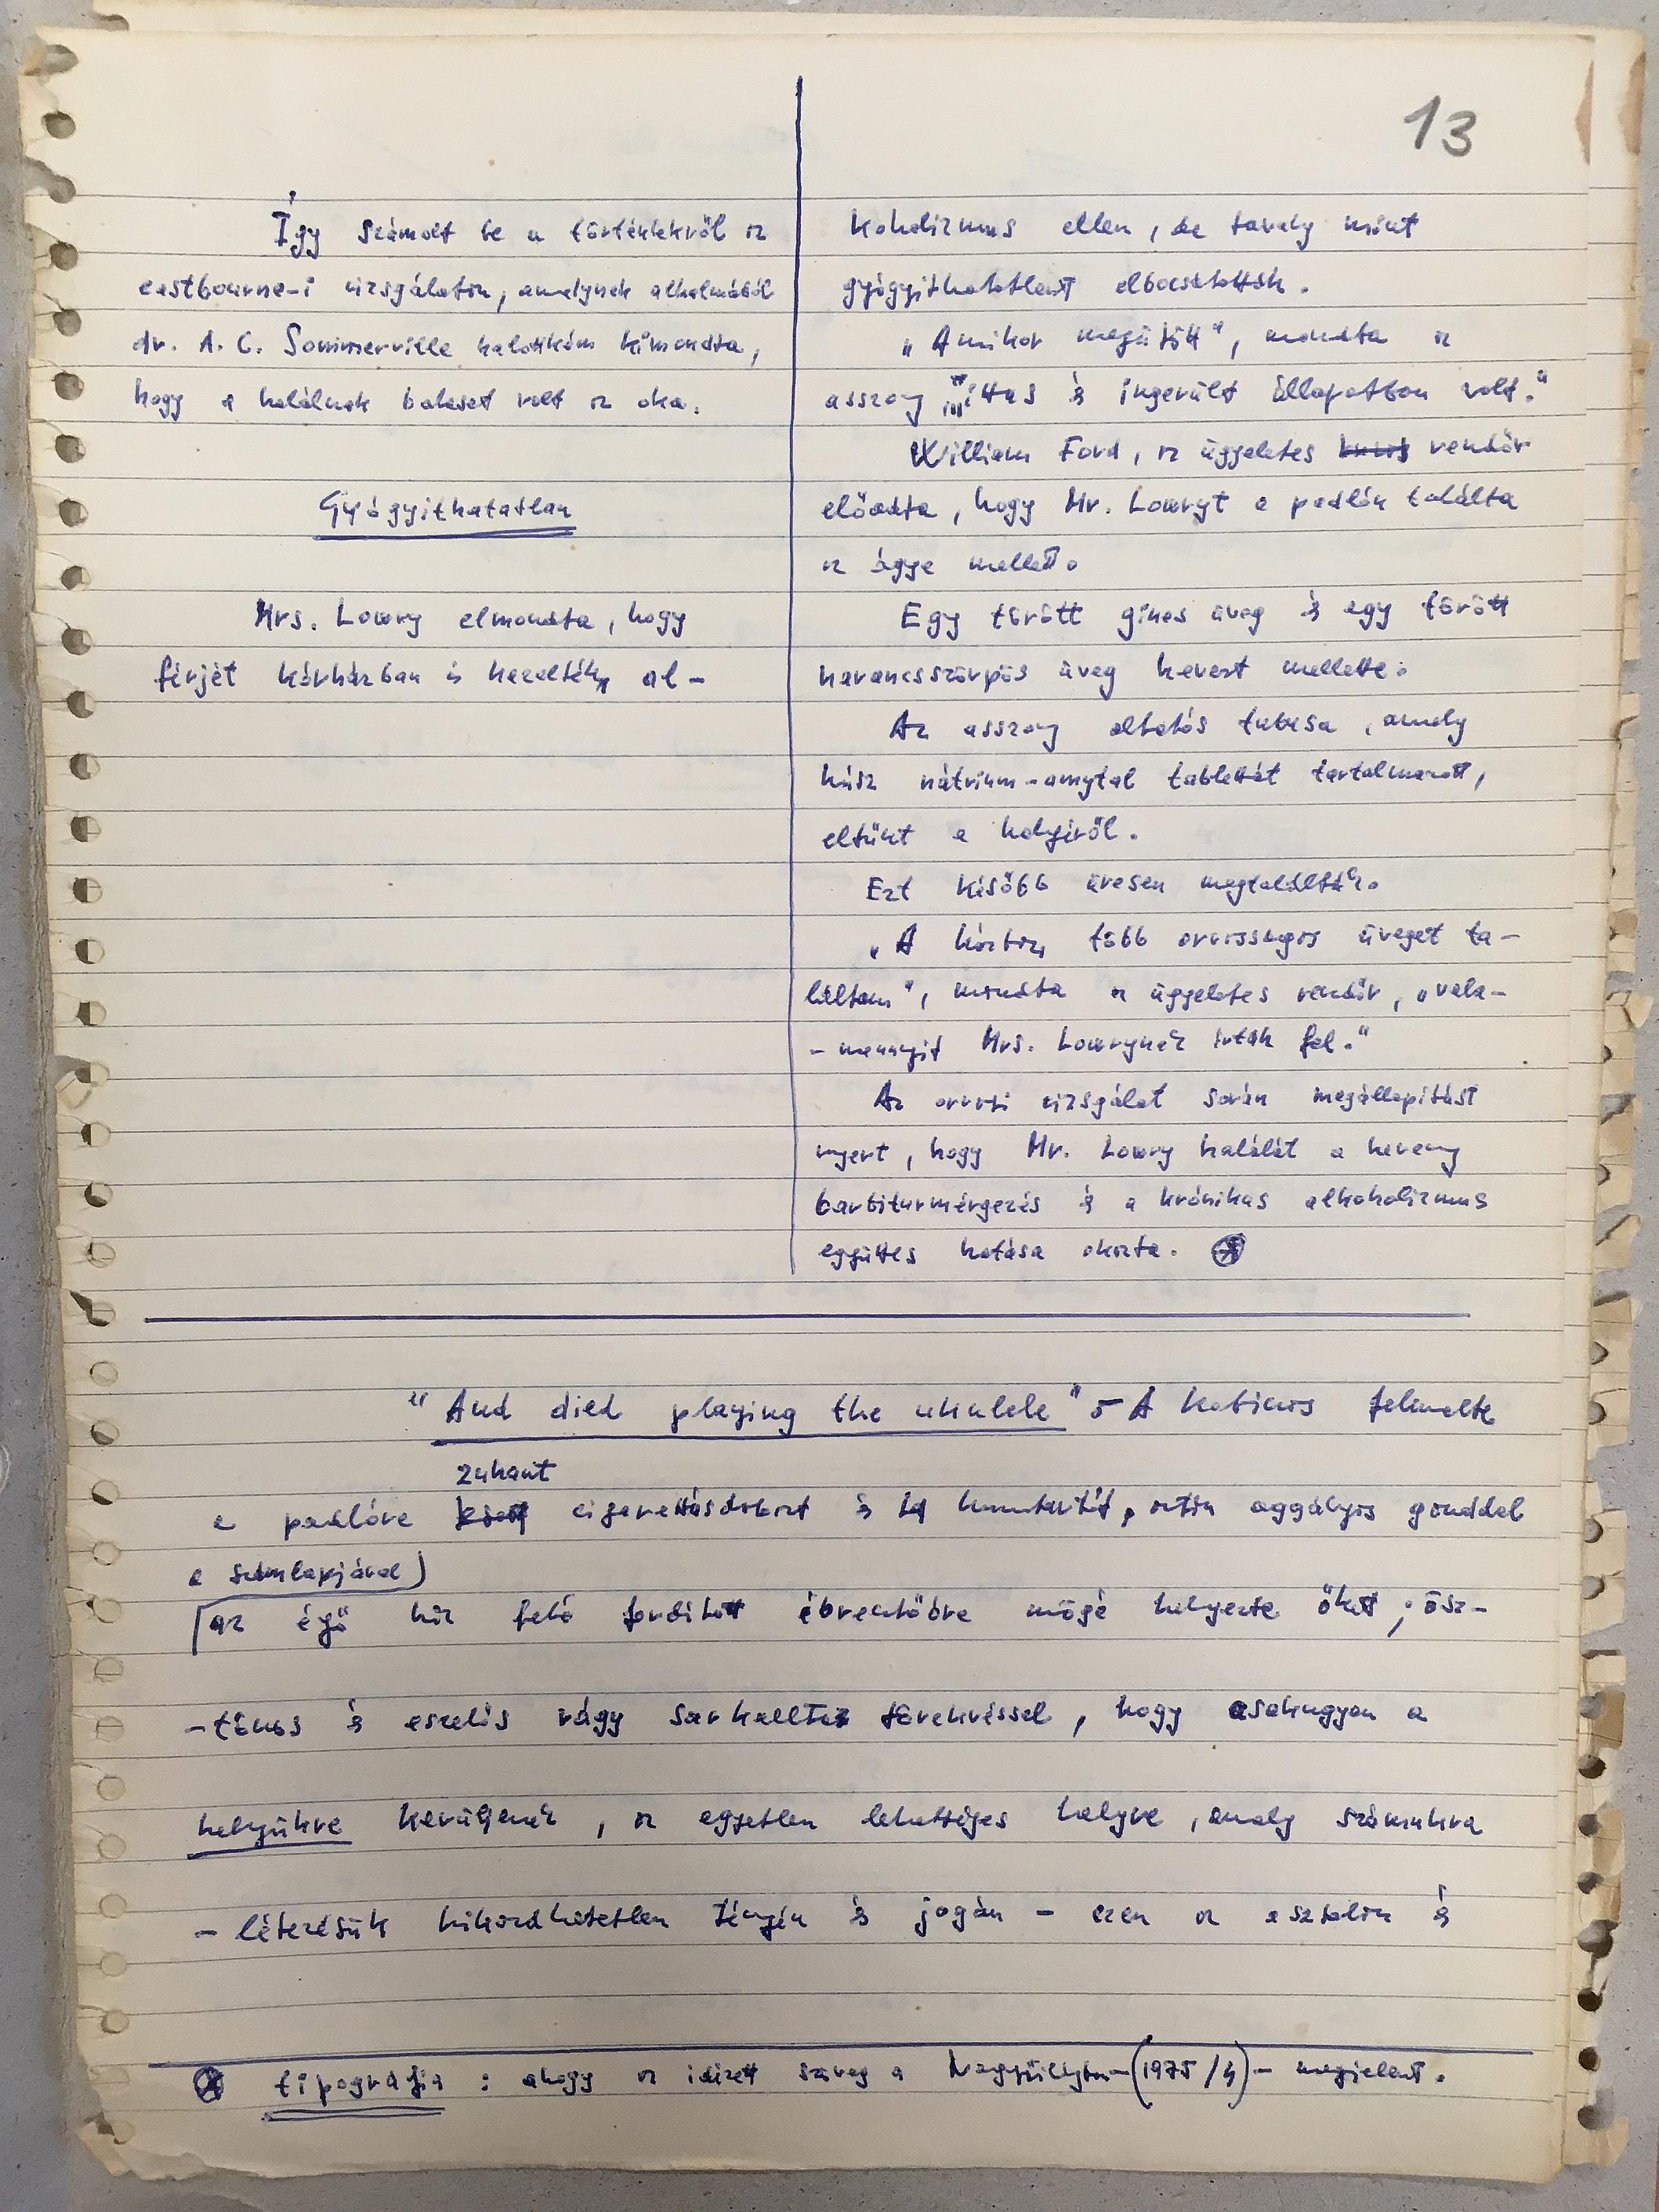 13
Így számolt be a történtekről az
eastbourne-i vizsgálaton, amelynek alkalmából
dr. A. C. Sommerville halottkém kimondta,
hogy a halálnak baleset volt az oka.
Gyógyithatatlan
Mrs. Lowry elmondta, hogy
férjét kórházban is kezelték al-
koholizmus ellen, de tavaly mint
gyógyithatatlant elbocsátották.
„Amikor megütött", mondta az
asszony „ittas és ingerült állapotban volt."
William Ford, az ügyeletes rendőr
előadta, hogy Mr. Lowryt a padlón találta
az ágya mellett.
Egy törött gines üveg és egy törött
narancsszörpös üveg hevert mellette.
Az asszony altatós tubusa, amely
húsz nátrium-amytal tablettát tartalmazott,
eltünt a helyéről.
Ezt később üresen megtalálták.
„A házban több orvosságos üveget ta-
láltam", mondta az ügyeletes rendőr, „vala-
- mennyit Mrs. Lowrynak irták fel."
Az orvosi vizsgálat során megállapitást
nyert, hogy Mr. Lowry halálát a heveny
barbiturmérgezés és a krónikus alkoholizmus
együttes hatása okozta. ⊛
"And died playing the ukulele" - A felemelte
zuhant
a padlóre cigarettásdobozt és aztán aggályos gonddal
a számlapjával)
az égő ház felé forditott ébresztőóra mögé helyezte őket; ösz-
-tönös és eszelős vágy sarkallta törekvéssel, hogy csakugyan a
helyükre kerüljenek, az egyetlen lehetséges helyre, amely számukra
- létezésük kikezdhetetlen tényén és jogán - ezen az asztalon és
⊛ tipográfia : ahogy az idézett szöveg a Nagyvilágban-(1975/4)- megjelent.